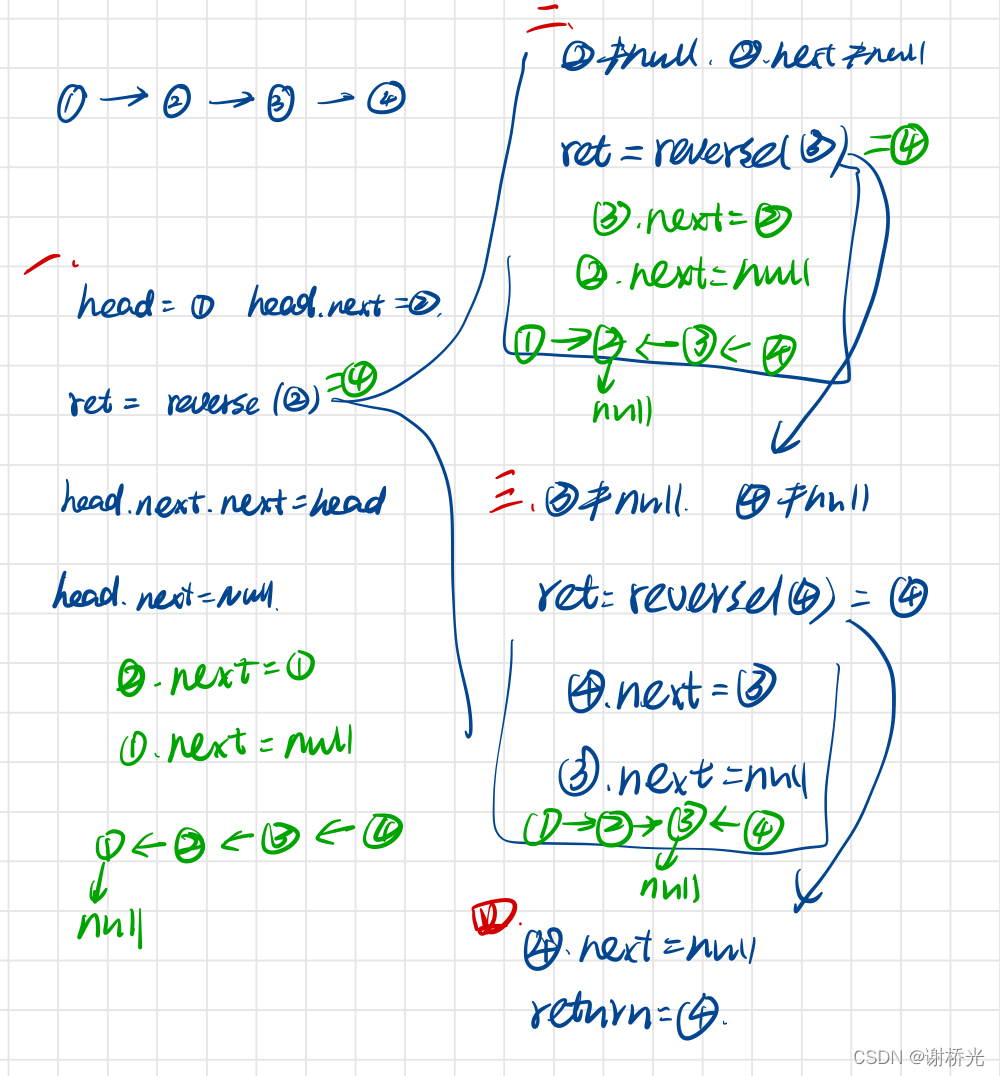 ① → ② → ③ → ④
一.
head = ① head.next = ②.
ret = reverse (②) = ④
head.next.next = head
head.next = null.
②.next = ①
①.next = null
① ← ② ← ③ ← ④
↓
null
二
② ≠ null. ②.next ≠ null
ret = reverse(③) = ④
③.next = ②
②.next = null
① → ② ← ③ ← ④
↓
null
三.
③ ≠ null. ④ ≠ null
ret = reverse(④) = ④
④.next = ③
③.next = null
① → ② → ③ ← ④
↓
null
四.
④.next = null
return = ④.
CSDN @谢桥光